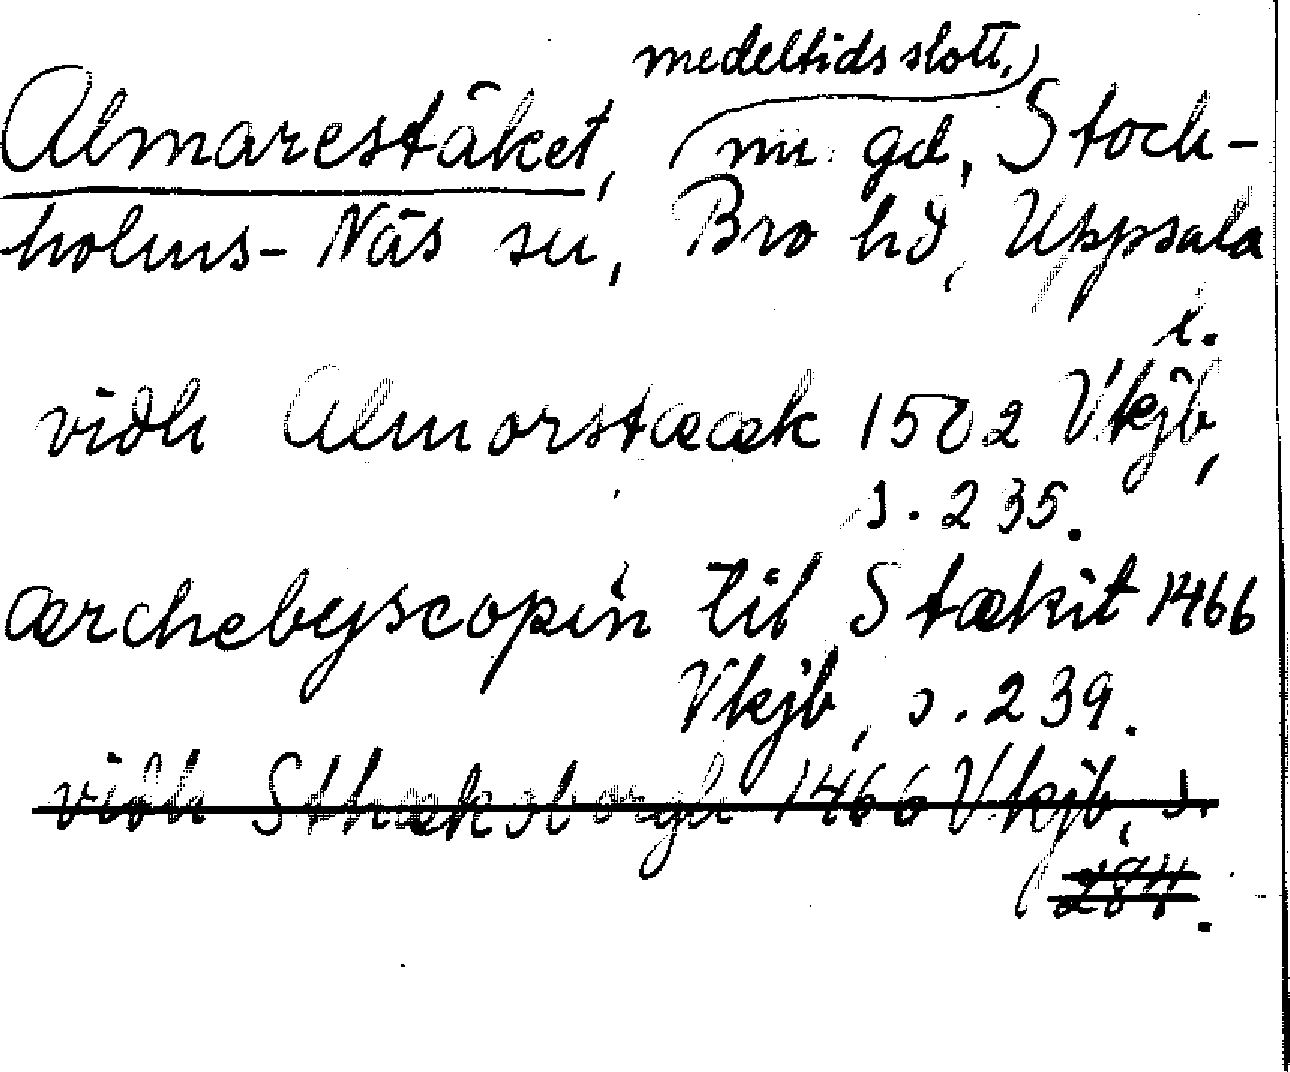 medeltidsslott,
Almarestäket, nu gd, Stock-
holms-Näs sn, Bro hd, Uppsala
l.
vidh Almorstææk 1502 Vkjb,
s. 235.
ærchebyscopin til Stækit 1466
Vkjb, s. 239.
vidh Sthæksborgh 1466 Vkjb, s.
284.